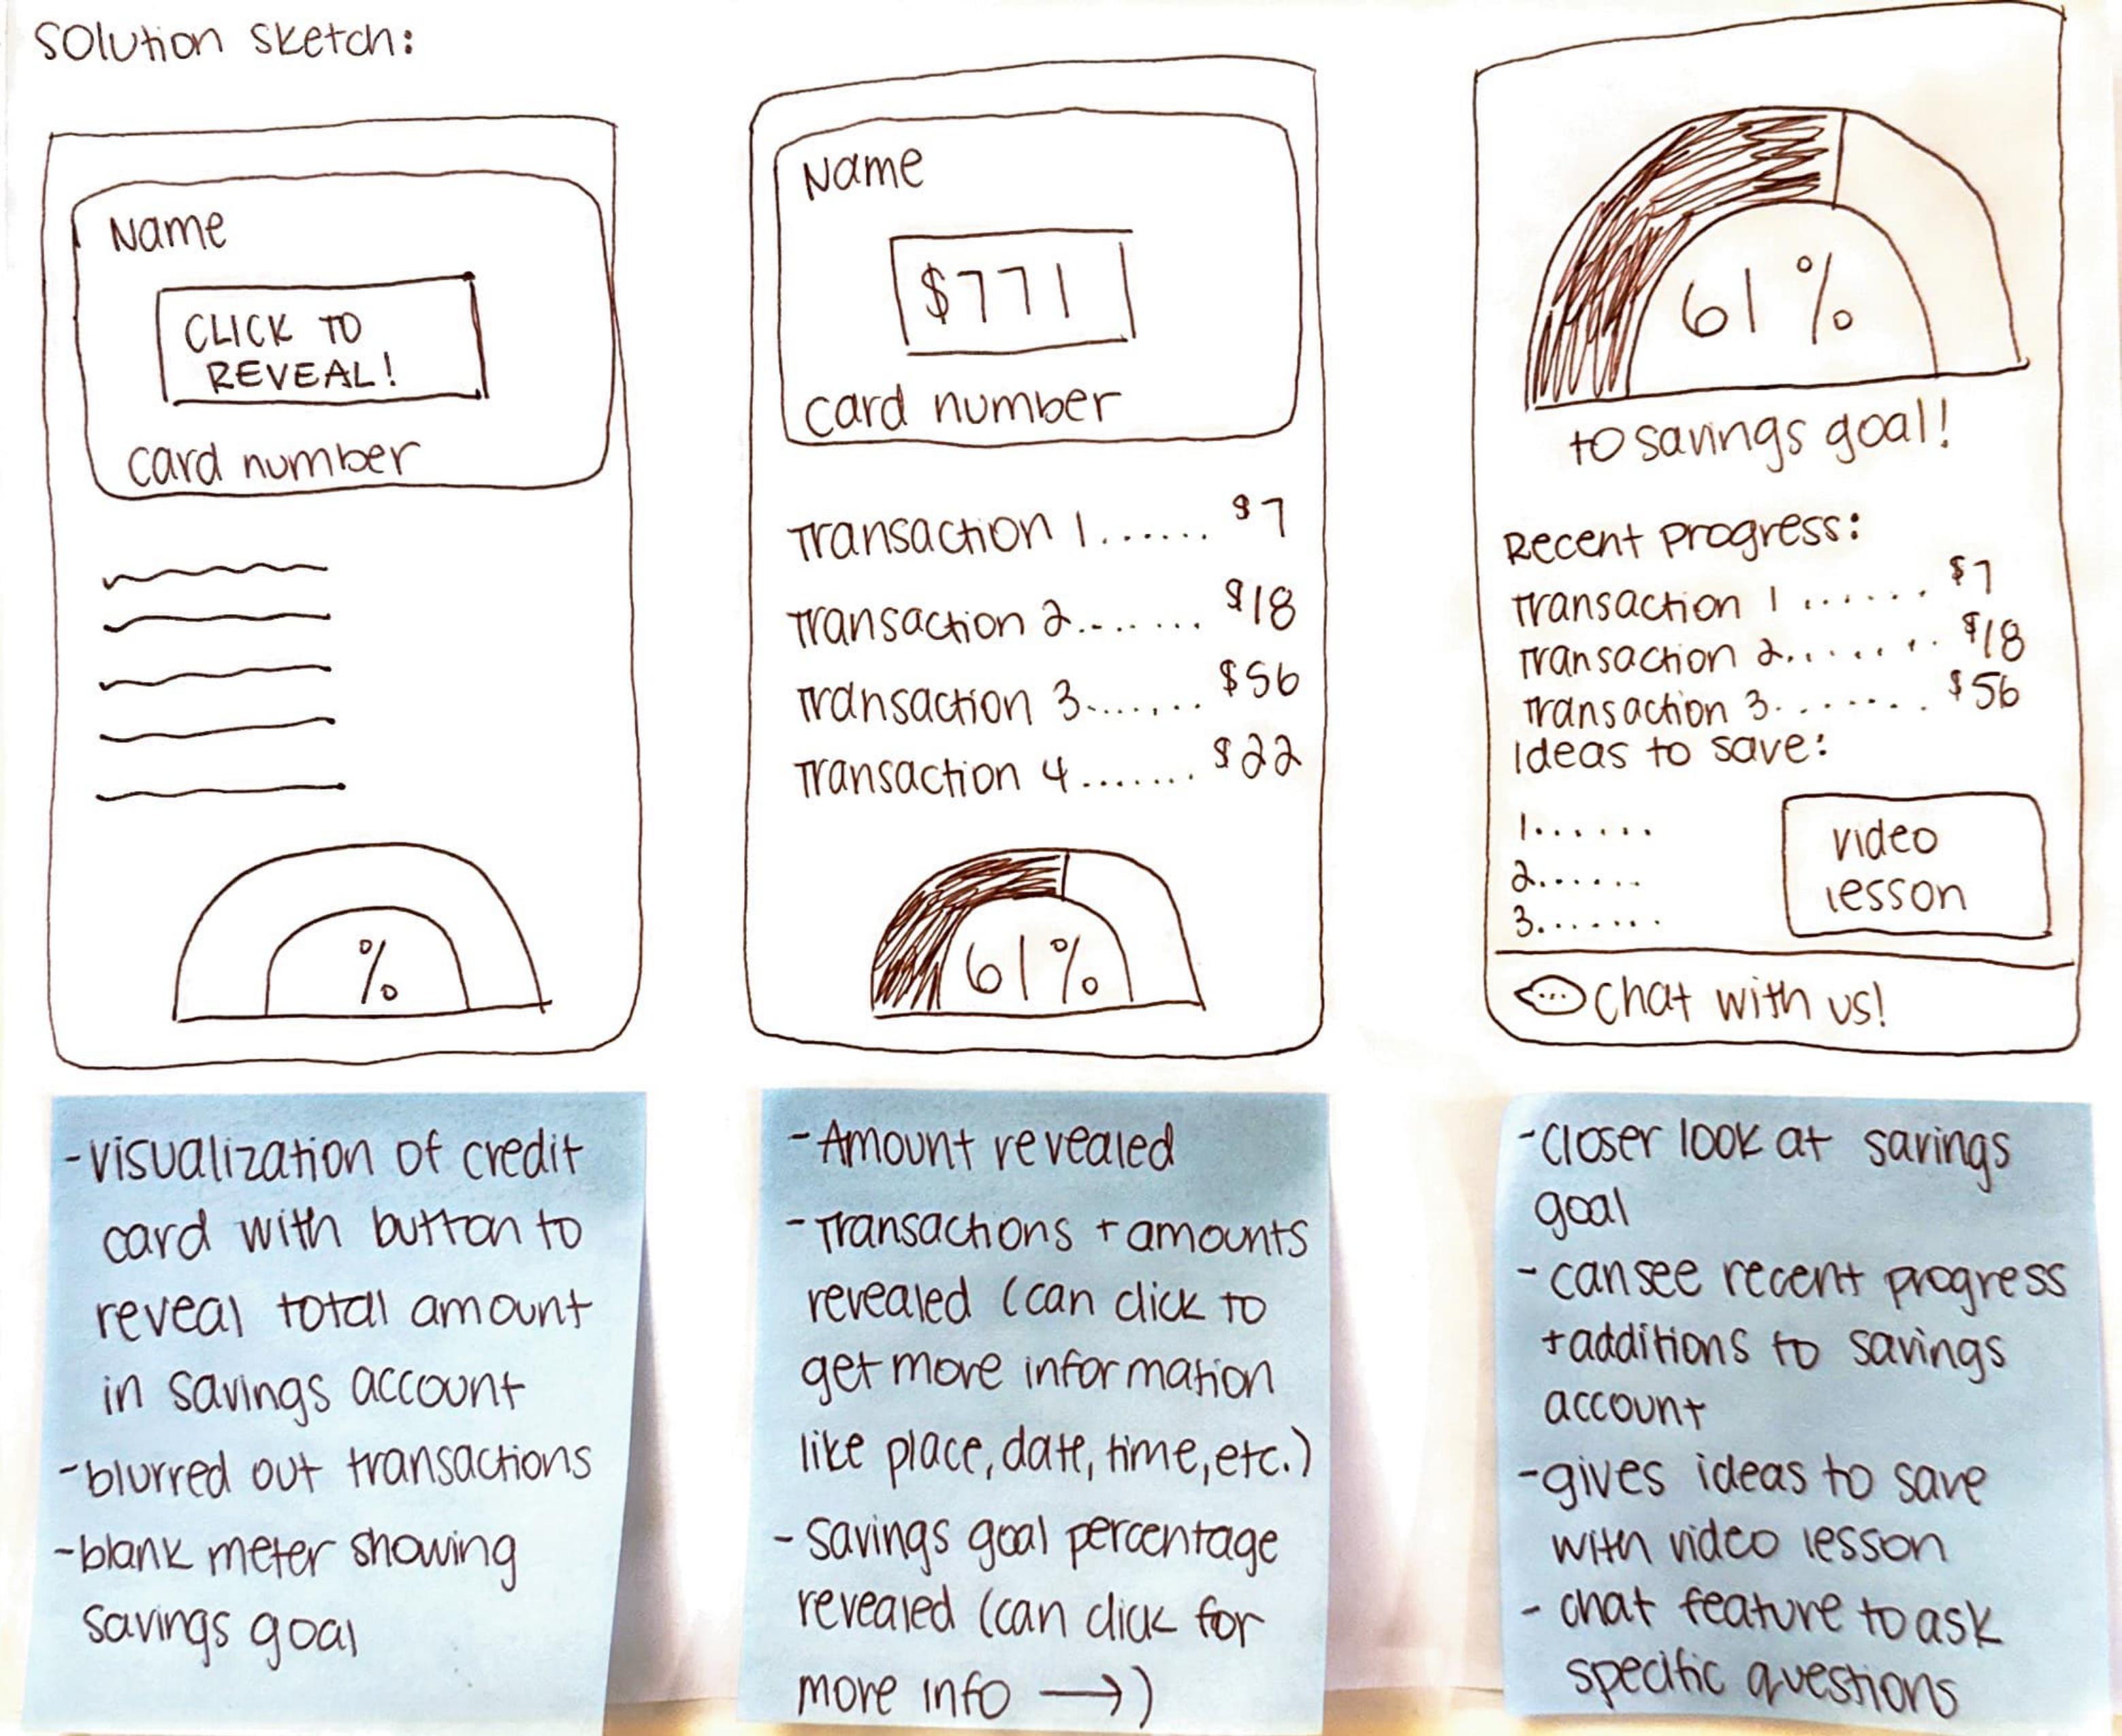 Solution Sketch:
Name
CLICK TO
REVEAL!
card number
%
Name
$771
card number
Transaction 1...... $7
Transaction 2......... $18
Transaction 3........ $56
Transaction 4....... $22
61%
61%
to savings goal!
Recent Progress:
Transaction 1 ...... $7
Transaction 2......... $18
Transaction 3........ $56
Ideas to save:
1......
2......
3.......
video
lesson
... Chat with us!
- visualization of credit
card with button to
reveal total amount
in savings account
- blurred out transactions
- blank meter showing
savings goal
- Amount revealed
- Transactions + amounts
revealed (can click to
get more information
like place, date, time, etc.)
- Savings goal percentage
revealed (can click for
more info →)
- closer look at savings
goal
- can see recent progress
+ additions to savings
account
- gives ideas to save
with video lesson
- chat feature to ask
specific questions